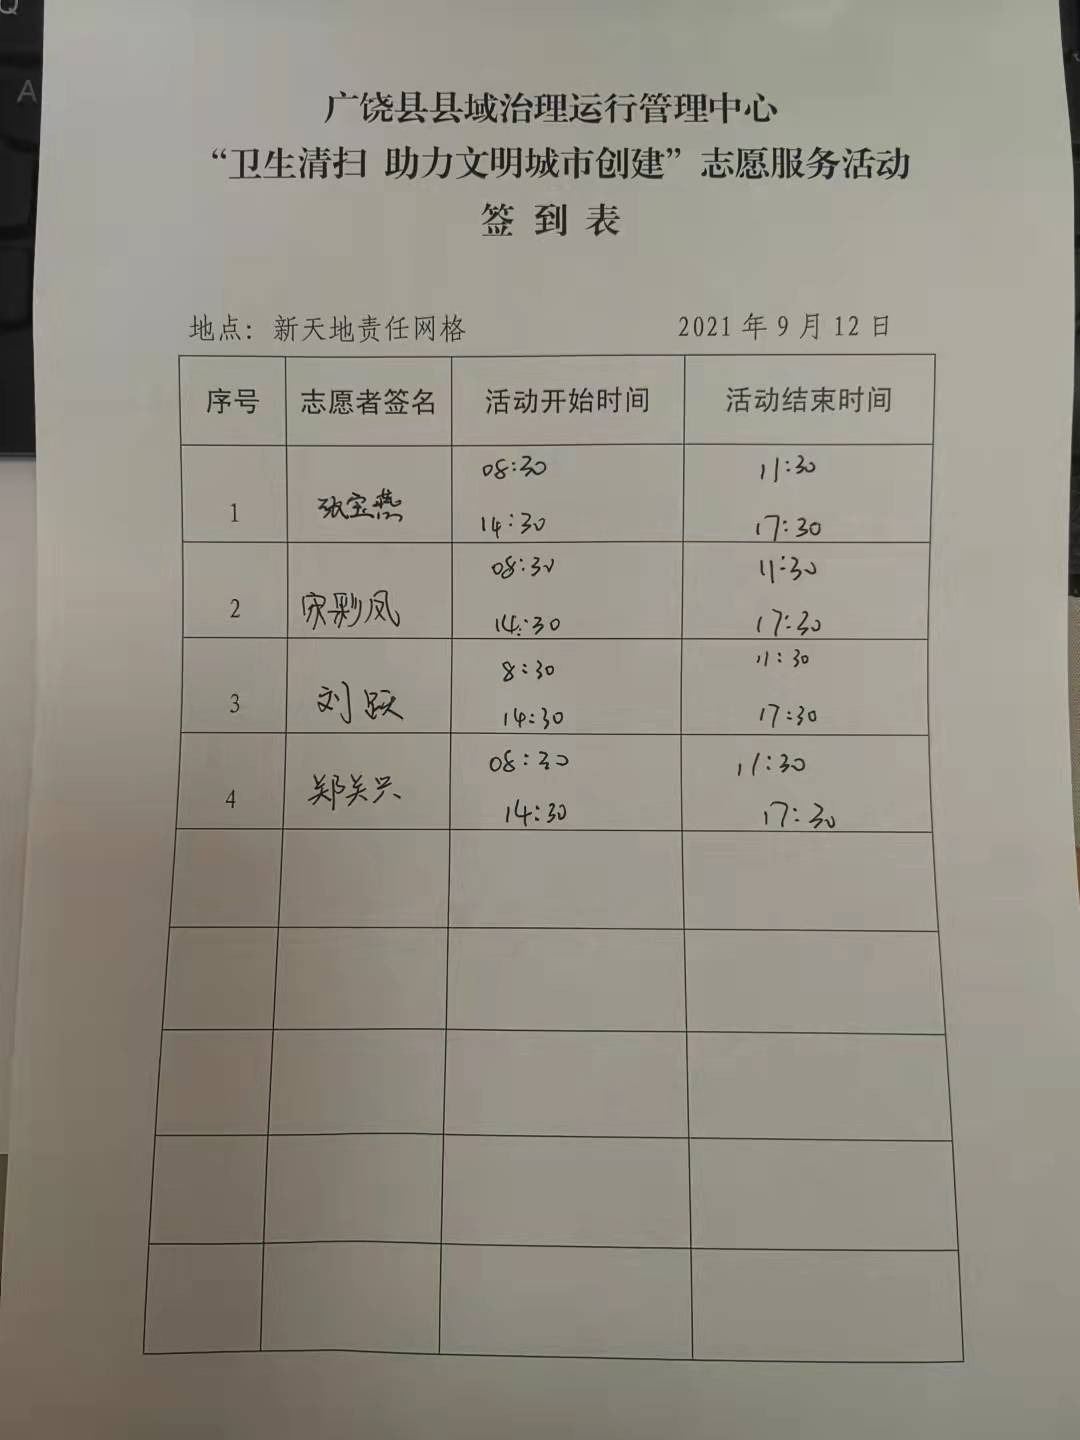 广饶县县域治理运行管理中心
“卫生清扫 助力文明城市创建”志愿服务活动
签到表
地点：新天地责任网格 2021年9月12日
序号 志愿者签名 活动开始时间 活动结束时间
08:30 11:30
1 张宝燕
14:30 17:30
08:30 11:30
2 宋彩凤
14:30 17:30
8:30 11:30
3 刘跃
14:30 17:30
08:30 11:30
4 郑关兴
14:30 17:30